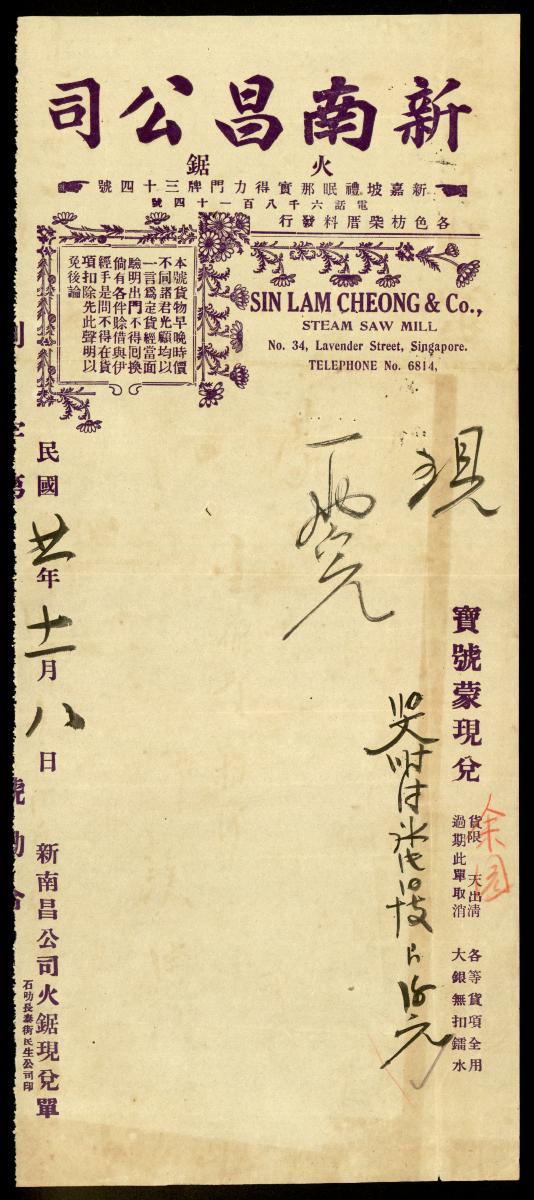 新南昌公司
火鋸
新嘉坡禮眠那實得力門牌三十四號
電話六千八百一十四號
各色枋柴厝料發行
本號貨物早晚時價
不同諸君光顧均以
一言爲定貨經當面
驗明出門不得囘換
倘有各件賒借與伊
經手是問不得在貨
項扣除先此聲明以
免後論
SIN LAM CHEONG & Co.,
STEAM SAW MILL
No. 34, Lavender Street, Singapore.
TELEPHONE No. 6814,
現
寶號蒙現兌
貨限 天出清
過期此單取消
各等貨項全用
大銀無扣鐳水
余園
民國廿年十二月八日
新南昌公司火鋸現兌單
石叻長泰街民生公司印